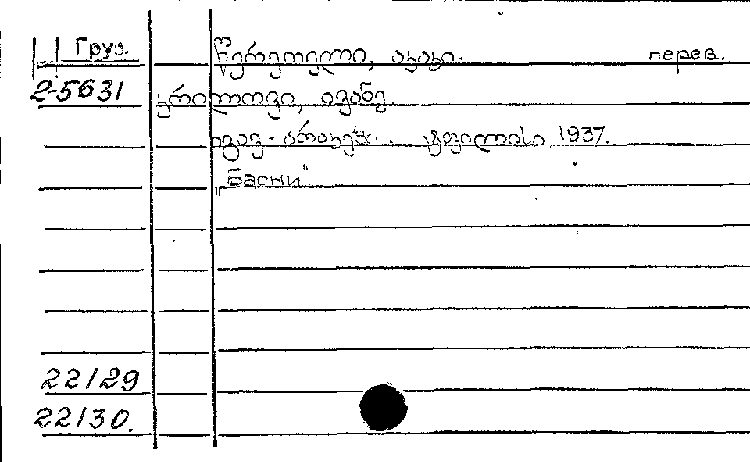 Груз. წერეთელი, აკაკი. перев.
2-5631 კრილოვი, ივანე.
იგავ-არაკები. ტფილისი 1937.
„Басни"
22129
22130.